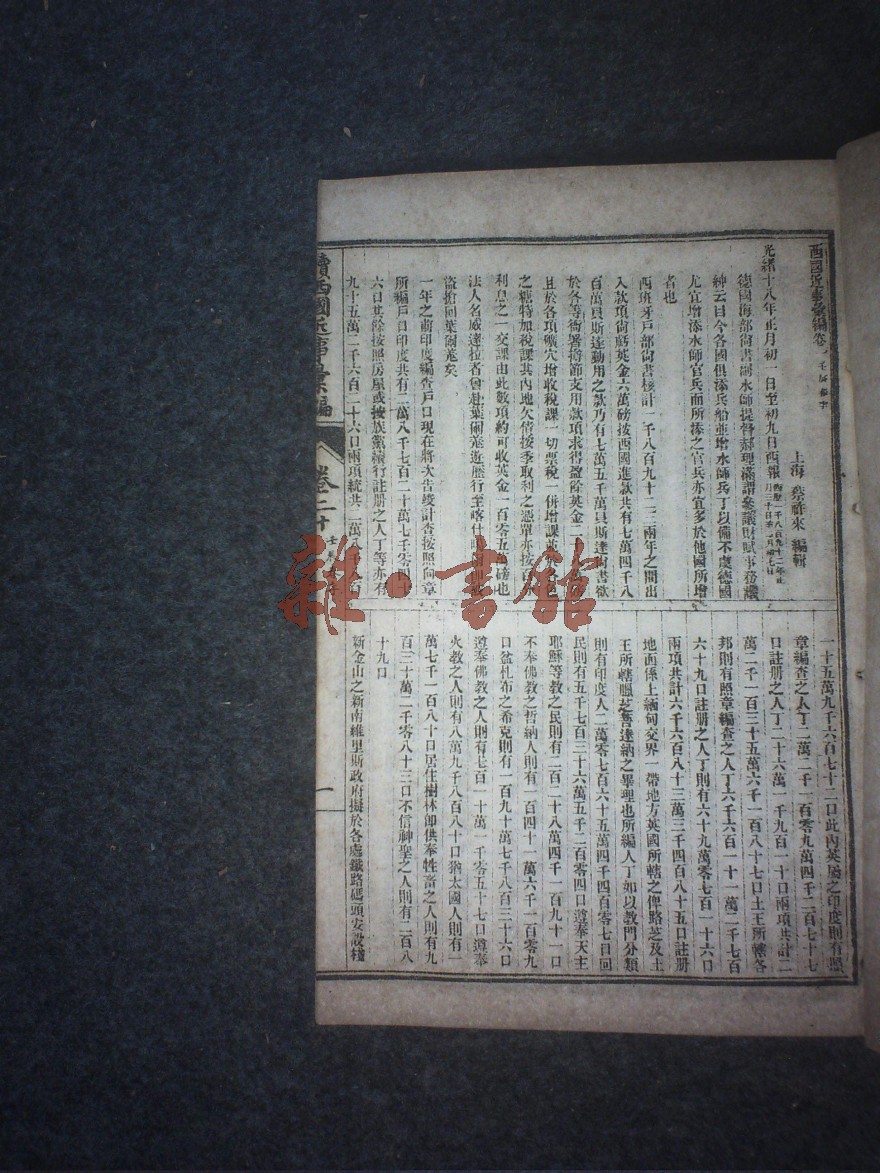 西國近事彙編卷
上海 蔡祚來 編輯
光緒十八年正月初一日至初九日西報
德國海部尚書副水師提督赫理滿謂參議財賦事務議
紳云目今各國俱添兵船並增水師兵丁以備不虞德國
尤宜增添水師官兵而所添之官兵亦宜多於他國所增
者也
西班牙戶部尚書核計一千八百九十二三兩年之間出
入款項尚虧英金六萬磅按西國進款共有七萬四千八
百萬貝斯達動用之款乃有七萬五千萬貝斯達尚書欲
於各等衙署撙節支用款項求得盈餘英金二
且於各項礦穴增收稅課一切票稅一併增課並
之糖特加稅課其內地欠債按季取利之憑單亦按百
利息之一交課由此數項約可收英金一百零五萬磅也
法人名威達拉者曾赴葉爾羌近歷行至喀什
盜搶回葉爾羌矣
一年之前印度編查戶口現在將次告竣計查按照向章
所編戶口印度共有二萬八千七百二十萬七千零四十
六口其餘按照房屋或按族黨續行註冊之人丁等亦有
九十五萬二千六百二十六口兩項統共二萬八千八百
續西國近事彙編
卷二十
一
一十五萬九千六百七十二口此內英屬之印度則有照
章編查之人丁二萬二千一百零九萬四千二百七十七
口註冊之人丁二十六萬一千九百一十口兩項共計二
萬二千一百三十五萬六千一百八十七口土王所轄各
邦則有照章編查之人丁六千六百一十一萬二千七百
六十九口註冊之人丁則有六十九萬零七百一十六口
兩項共計六千六百八十三萬三千四百八十五口註冊
地西係上緬甸交界一帶地方英國所轄之俾路芝及土
王所轄臘芝普達納之畢理也所編人丁如以教門分類
則有印度人二萬零七百六十五萬四千四百零七口回
民則有五千七百三十六萬五千二百零四口遵奉天主
耶穌等教之民則有二百二十八萬四千一百九十一口
不奉佛教之哲納人則有一百四十一萬六千一百零九
口盆札布之希克則有一百九十萬七千八百三十六口
遵奉佛教之人則有七百一十萬一千零五十七口遵奉
火教之人則有八萬九千八百八十口猶太國人則有一
萬七千一百八十口居住樹林卽供奉牲畜之人則有九
百三十萬二千零八十三口不信神聖之人則有二百八
十九口
新金山之新南維里斯政府擬於各處鐵路碼頭安設棧
雜·書館